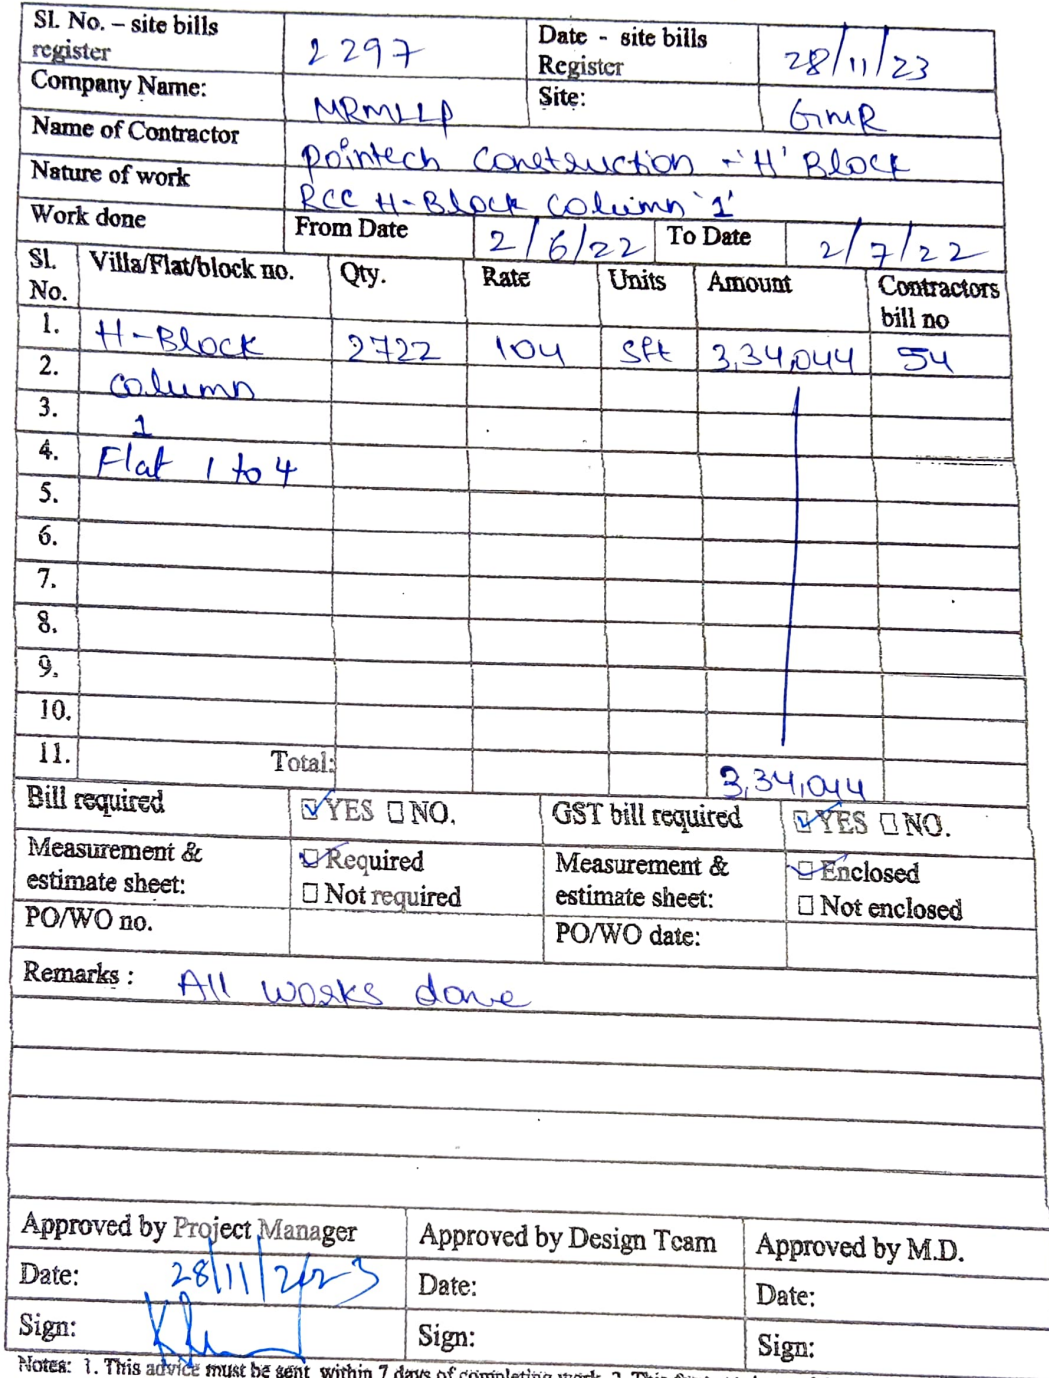 Sl. No. – site bills register 2297 Date - site bills Register 28/11/23
Company Name: MRMLLP Site: GMR
Name of Contractor pointech construction - 'H' Block
Nature of work RCC H-Block column '1'
Work done From Date 2/6/22 To Date 2/7/22
Sl. No. Villa/Flat/block no. Qty. Rate Units Amount Contractors bill no
1. H-Block 2722 104 sft 3,34,044 54
2. column
3. 1
4. Flat 1 to 4
5.
6.
7.
8.
9.
10.
11. Total: 3,34,044
Bill required YES NO. GST bill required YES NO.
Measurement & estimate sheet: Required Not required Measurement & estimate sheet: Enclosed Not enclosed
PO/WO no. PO/WO date:
Remarks : All works done
Approved by Project Manager Approved by Design Team Approved by M.D.
Date: 28/11/2023 Date: Date:
Sign: Sign: Sign:
Notes: 1. This advice must be sent within 7 days of completing work. 2. This